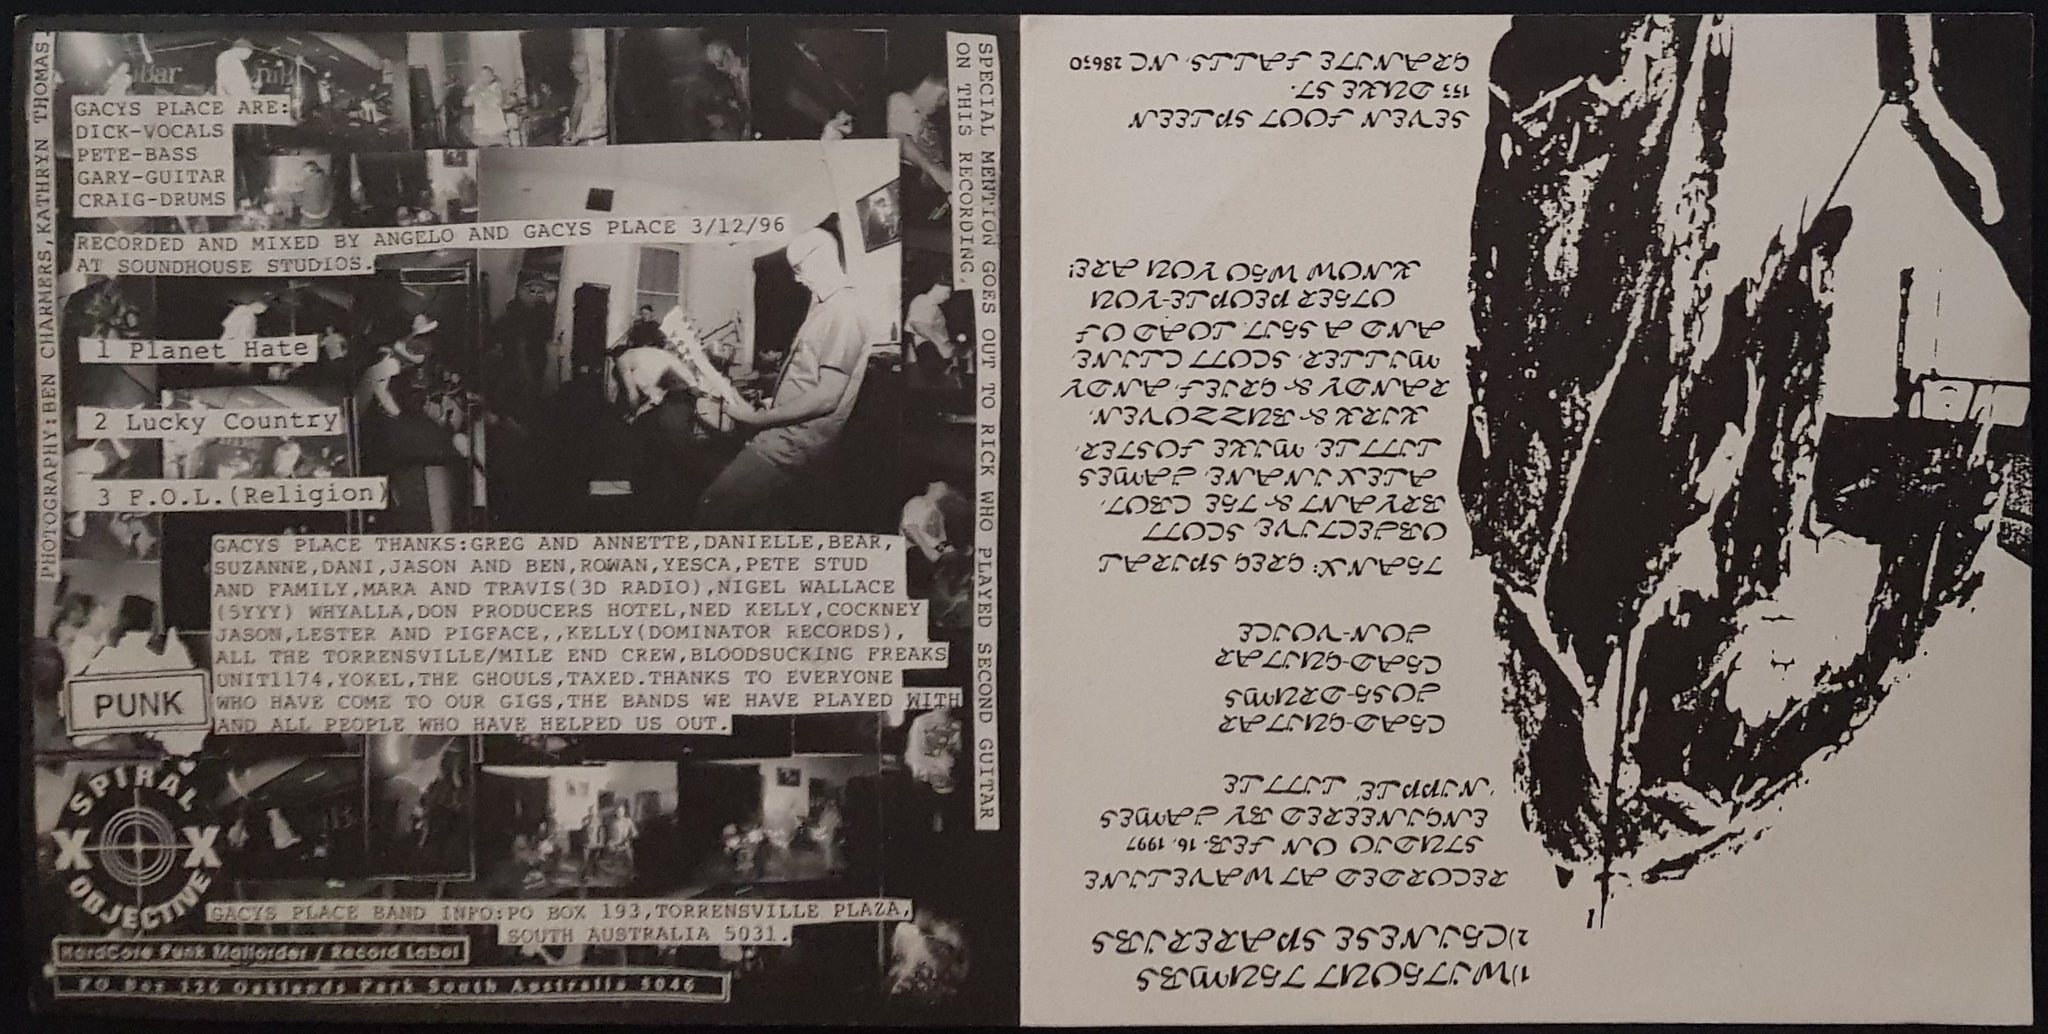 PHOTOGRAPHY: BEN CHARMERS, KATHRYN THOMAS.
GACYS PLACE ARE:
DICK-VOCALS
PETE-BASS
GARY-GUITAR
CRAIG-DRUMS
RECORDED AND MIXED BY ANGELO AND GACYS PLACE 3/12/96
AT SOUNDHOUSE STUDIOS.
1 Planet Hate
2 Lucky Country
3 F.O.L.(Religion)
GACYS PLACE THANKS:GREG AND ANNETTE,DANIELLE,BEAR,
SUZANNE,DANI,JASON AND BEN,ROWAN,YESCA,PETE STUD
AND FAMILY,MARA AND TRAVIS(3D RADIO),NIGEL WALLACE
(5YYY) WHYALLA,DON PRODUCERS HOTEL,NED KELLY,COCKNEY
JASON,LESTER AND PIGFACE,,KELLY(DOMINATOR RECORDS),
ALL THE TORRENSVILLE/MILE END CREW,BLOODSUCKING FREAKS
UNIT1174,YOKEL,THE GHOULS,TAXED.THANKS TO EVERYONE
WHO HAVE COME TO OUR GIGS,THE BANDS WE HAVE PLAYED WITH
AND ALL PEOPLE WHO HAVE HELPED US OUT.
PUNK
SPIRAL
X X
OBJECTIVE
GACYS PLACE BAND INFO:PO BOX 193,TORRENSVILLE PLAZA,
SOUTH AUSTRALIA 5031.
HardCore Punk Mailorder / Record Label
PO Box 126 Oaklands Park South Australia 5046
SPECIAL MENTION GOES OUT TO RICK WHO PLAYED SECOND GUITAR
ON THIS RECORDING.
1)WITHOUT THUMBS
2)CHINESE SPARERIBS
RECORDED AT WAVELINE
STUDIO ON FEB. 16, 1997
ENGINEERED BY JAMES
'NIPPLE' LITTLE
CHAD-GUITAR
JOSH-DRUMS
CHAD-GUITAR
JON-VOICE
THANX: GREG SPIRAL
OBJECTIVE, SCOTT
BRYANT & THE CBOT,
ALEX INANE, JAMES
LITTLE, MIKE FOSTER,
KIRK & BUZZOVEN,
RANDY & GRIEF, ANDY
MILLER, SCOTT CLINE,
AND A SHIT LOAD OF
OTHER PEOPLE-YOU
KNOW WHO YOU ARE!
SEVEN FOOT SPLEEN
155 DUKE ST.
GRANITE FALLS, NC 28630